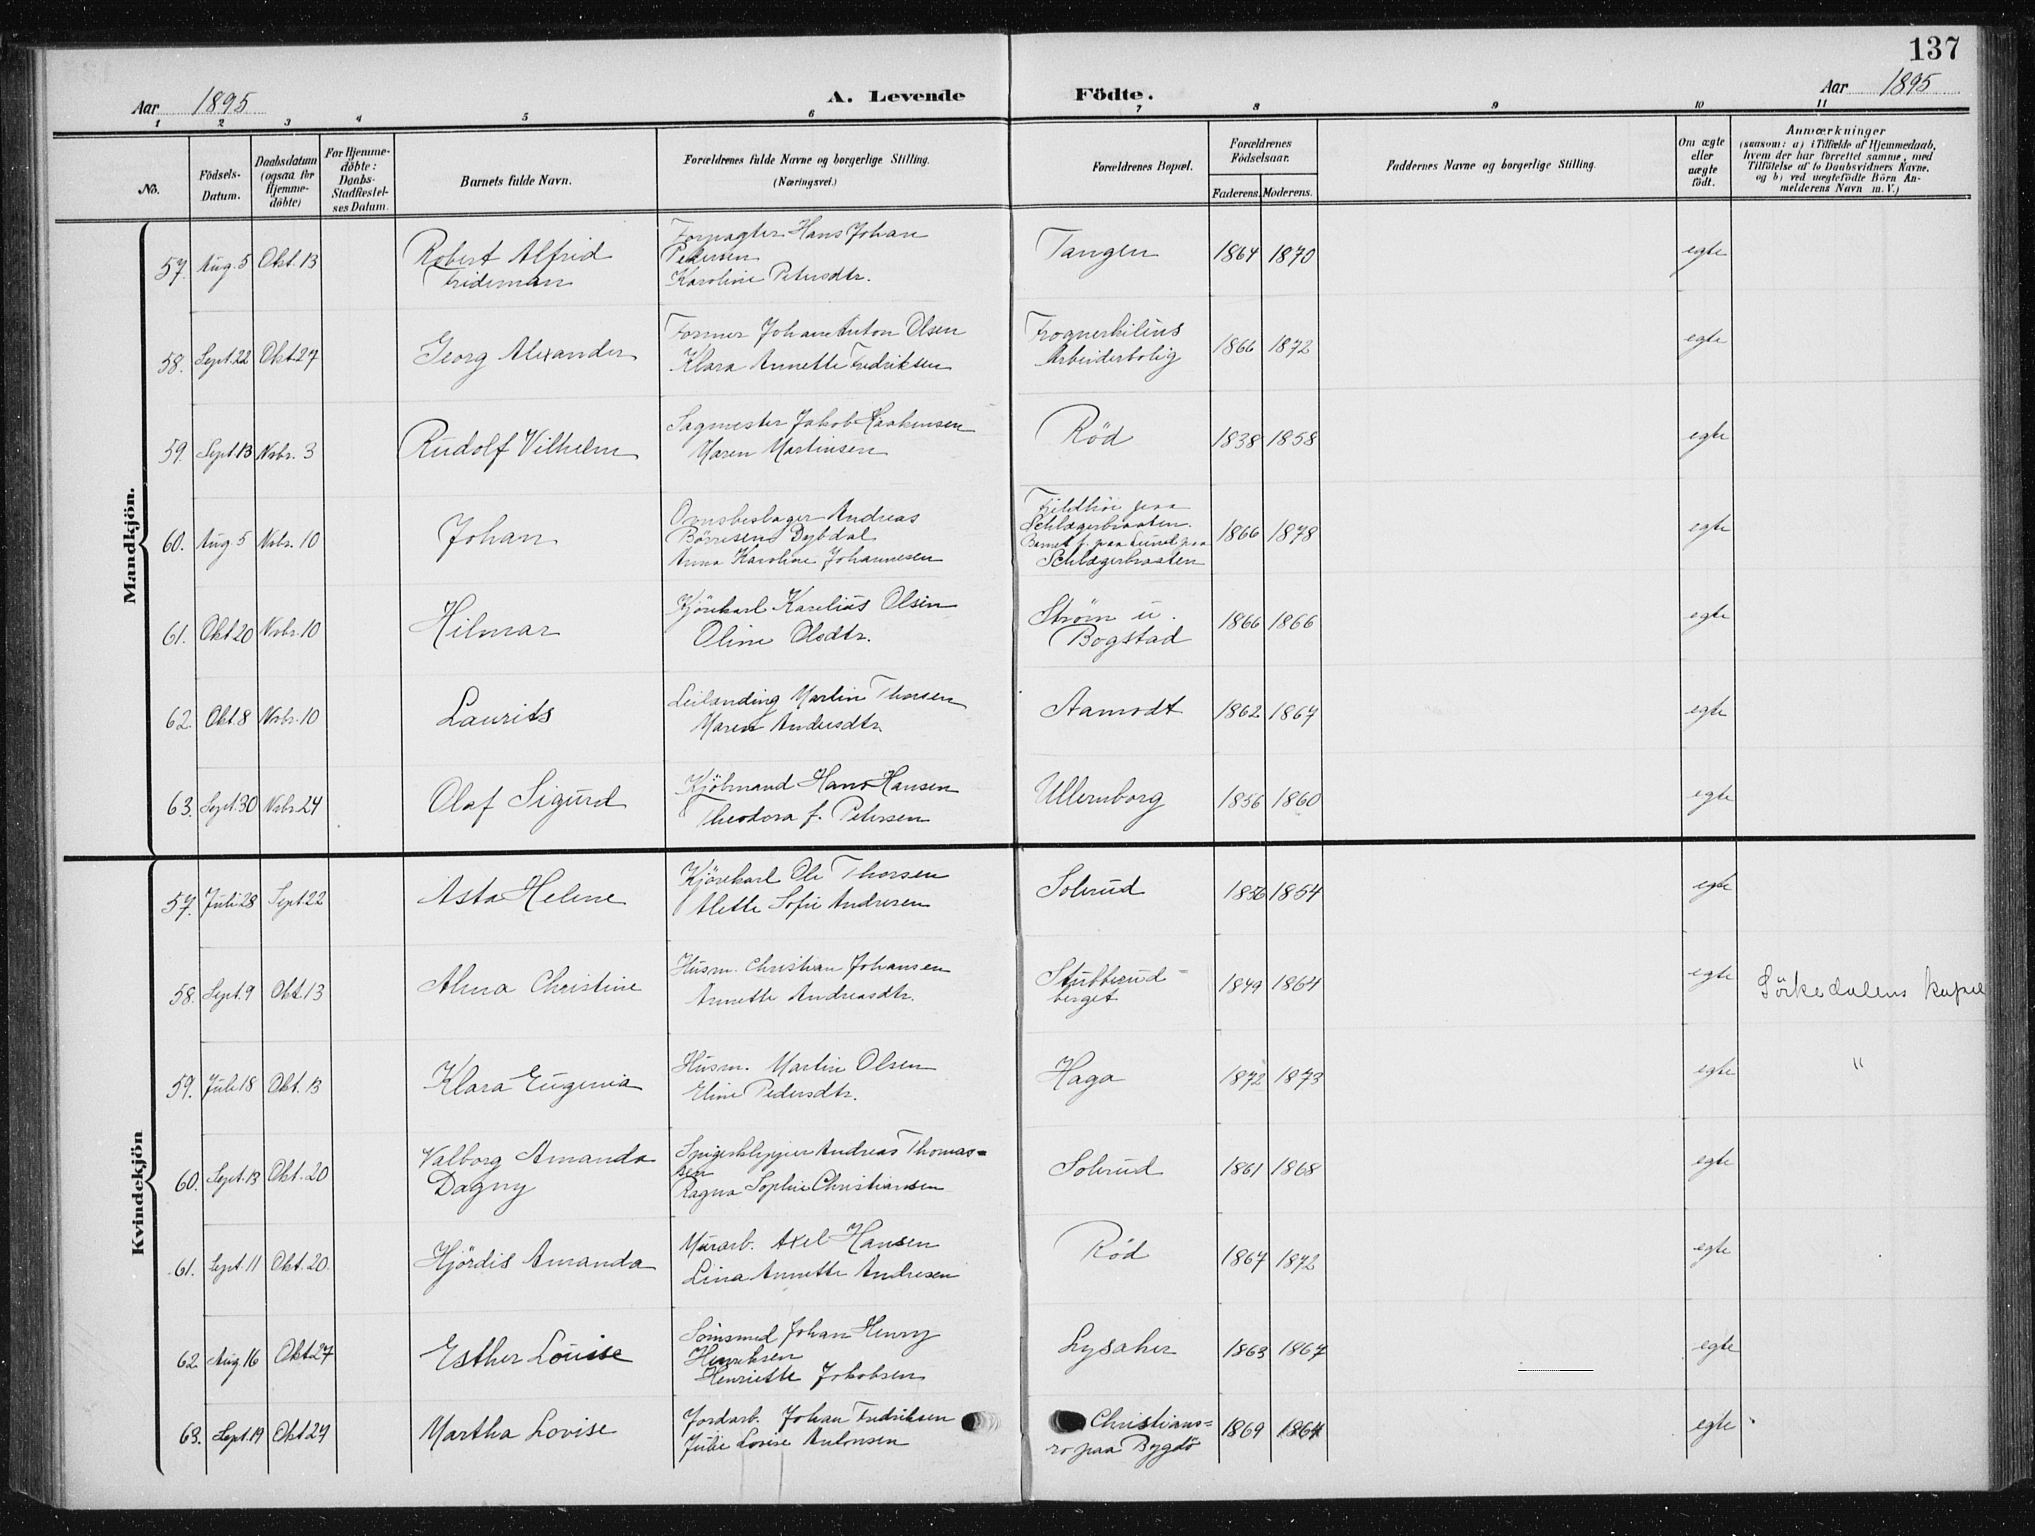 137
Aar 1895 A. Levende Födte. Aar 1895
1 2 3 4 5 6 7 8 9 10 11
No. Födsels-Datum. Daabsdatum (ogsaa for Hjemme-döbte) For Hjemme-döbte: Daabs-Stadfæstel-ses Datum. Barnets fulde Navn. Forældrenes fulde Navne og borgerlige Stilling. (Næringsvei.) Forældrenes Bopæl. Forældrenes Födselsaar. Faderens. Moderens. Faddernes Navne og borgerlige Stilling. Om ægte eller uægte födt. Anmærkninger (saasom: a) i Tilfælde af Hjemmedaab, hvem der har forrettet samme, med Tilföielse af to Daabsvidners Navne, og b) ved uægtefödte Börn An-melderens Navn m. V.)
Mandkjön.
57. Aug. 5 Okt. 13 Robert Alfrid Frideman Forpagter Hans Johan Pedersen Karoline Petersdtr. Tangen 1864 1870 egte
58. Sept. 22 Okt 27 Georg Alexander Former Johan Anton Olsen Klara Annette Fredriksen Frognerkilens Arbeiderbolig 1866 1872 egte
59. Sept 13 Nvbr. 3 Rudolf Vilhelm Sagmester Jakob Haakensen Maren Martinsen Rød 1838 1858 egte
60. Aug 5 Nvbr. 10 Johan Andreas Børresens Dybdal Anna Karoline Johannesen paa Schlægerbraaten. Barnet f. paa paa Schlægerbraaten 1866 1878 egte
61. Okt 20 Nvbr. 10 Hilmar Kjørekarl Karelius Olsen Oline Olsdtr. Strøm u. Bogstad 1866 1866 egte
62. Okt. 8 Nvbr. 10 Laurits Leilending Martin Thorsen Maren Andersdtr. Aamodt 1862 1867 egte
63. Sept. 30 Nvbr. 24 Olaf Sigurd Kjøbmand Hans Hansen Theodora f. Petersen Ullernborg 1856 1860 egte
Kvindekjön
57. Juli 28 Sept 22 Asta Helene Kjørekarl Ole Thorsen Alette Sofie Andresen Solerud 1856 1854 egte
58. Sept. 9 Okt. 13 Alma Christine Husm. Christian Johansen Annette Andreasdtr. Stubberud-berget 1849 1864 egte Sörkedalens kapel
59. Juli 18 Okt. 13 Klara Eugenia Husm. Martin Olsen Eline Pedersdtr. Haga 1872 1873 egte "
60. Sept. 13 Okt. 20 Valborg Amanda Dagny Spigerklipper Andreas Thomas=sen Ragna Sophie Christiansen Solerud 1861 1868 egte
61. Sept. 11 Okt. 20. Hjørdis Amanda Murarb. Axel Hansen Lina Annette Andresen Rød 1867 1872 egte
62. Aug 16 Okt 27 Esther Louise Johan Henry Henriksen Henriette Jakobsen Lysaker 1863 1867 egte
63. Sept. 19 Okt 27 Martha Lovise Jordarb. Johan Fredriksen Julie Lovise Antonsen Christians=ro paa Bygdø 1869 1864 egte